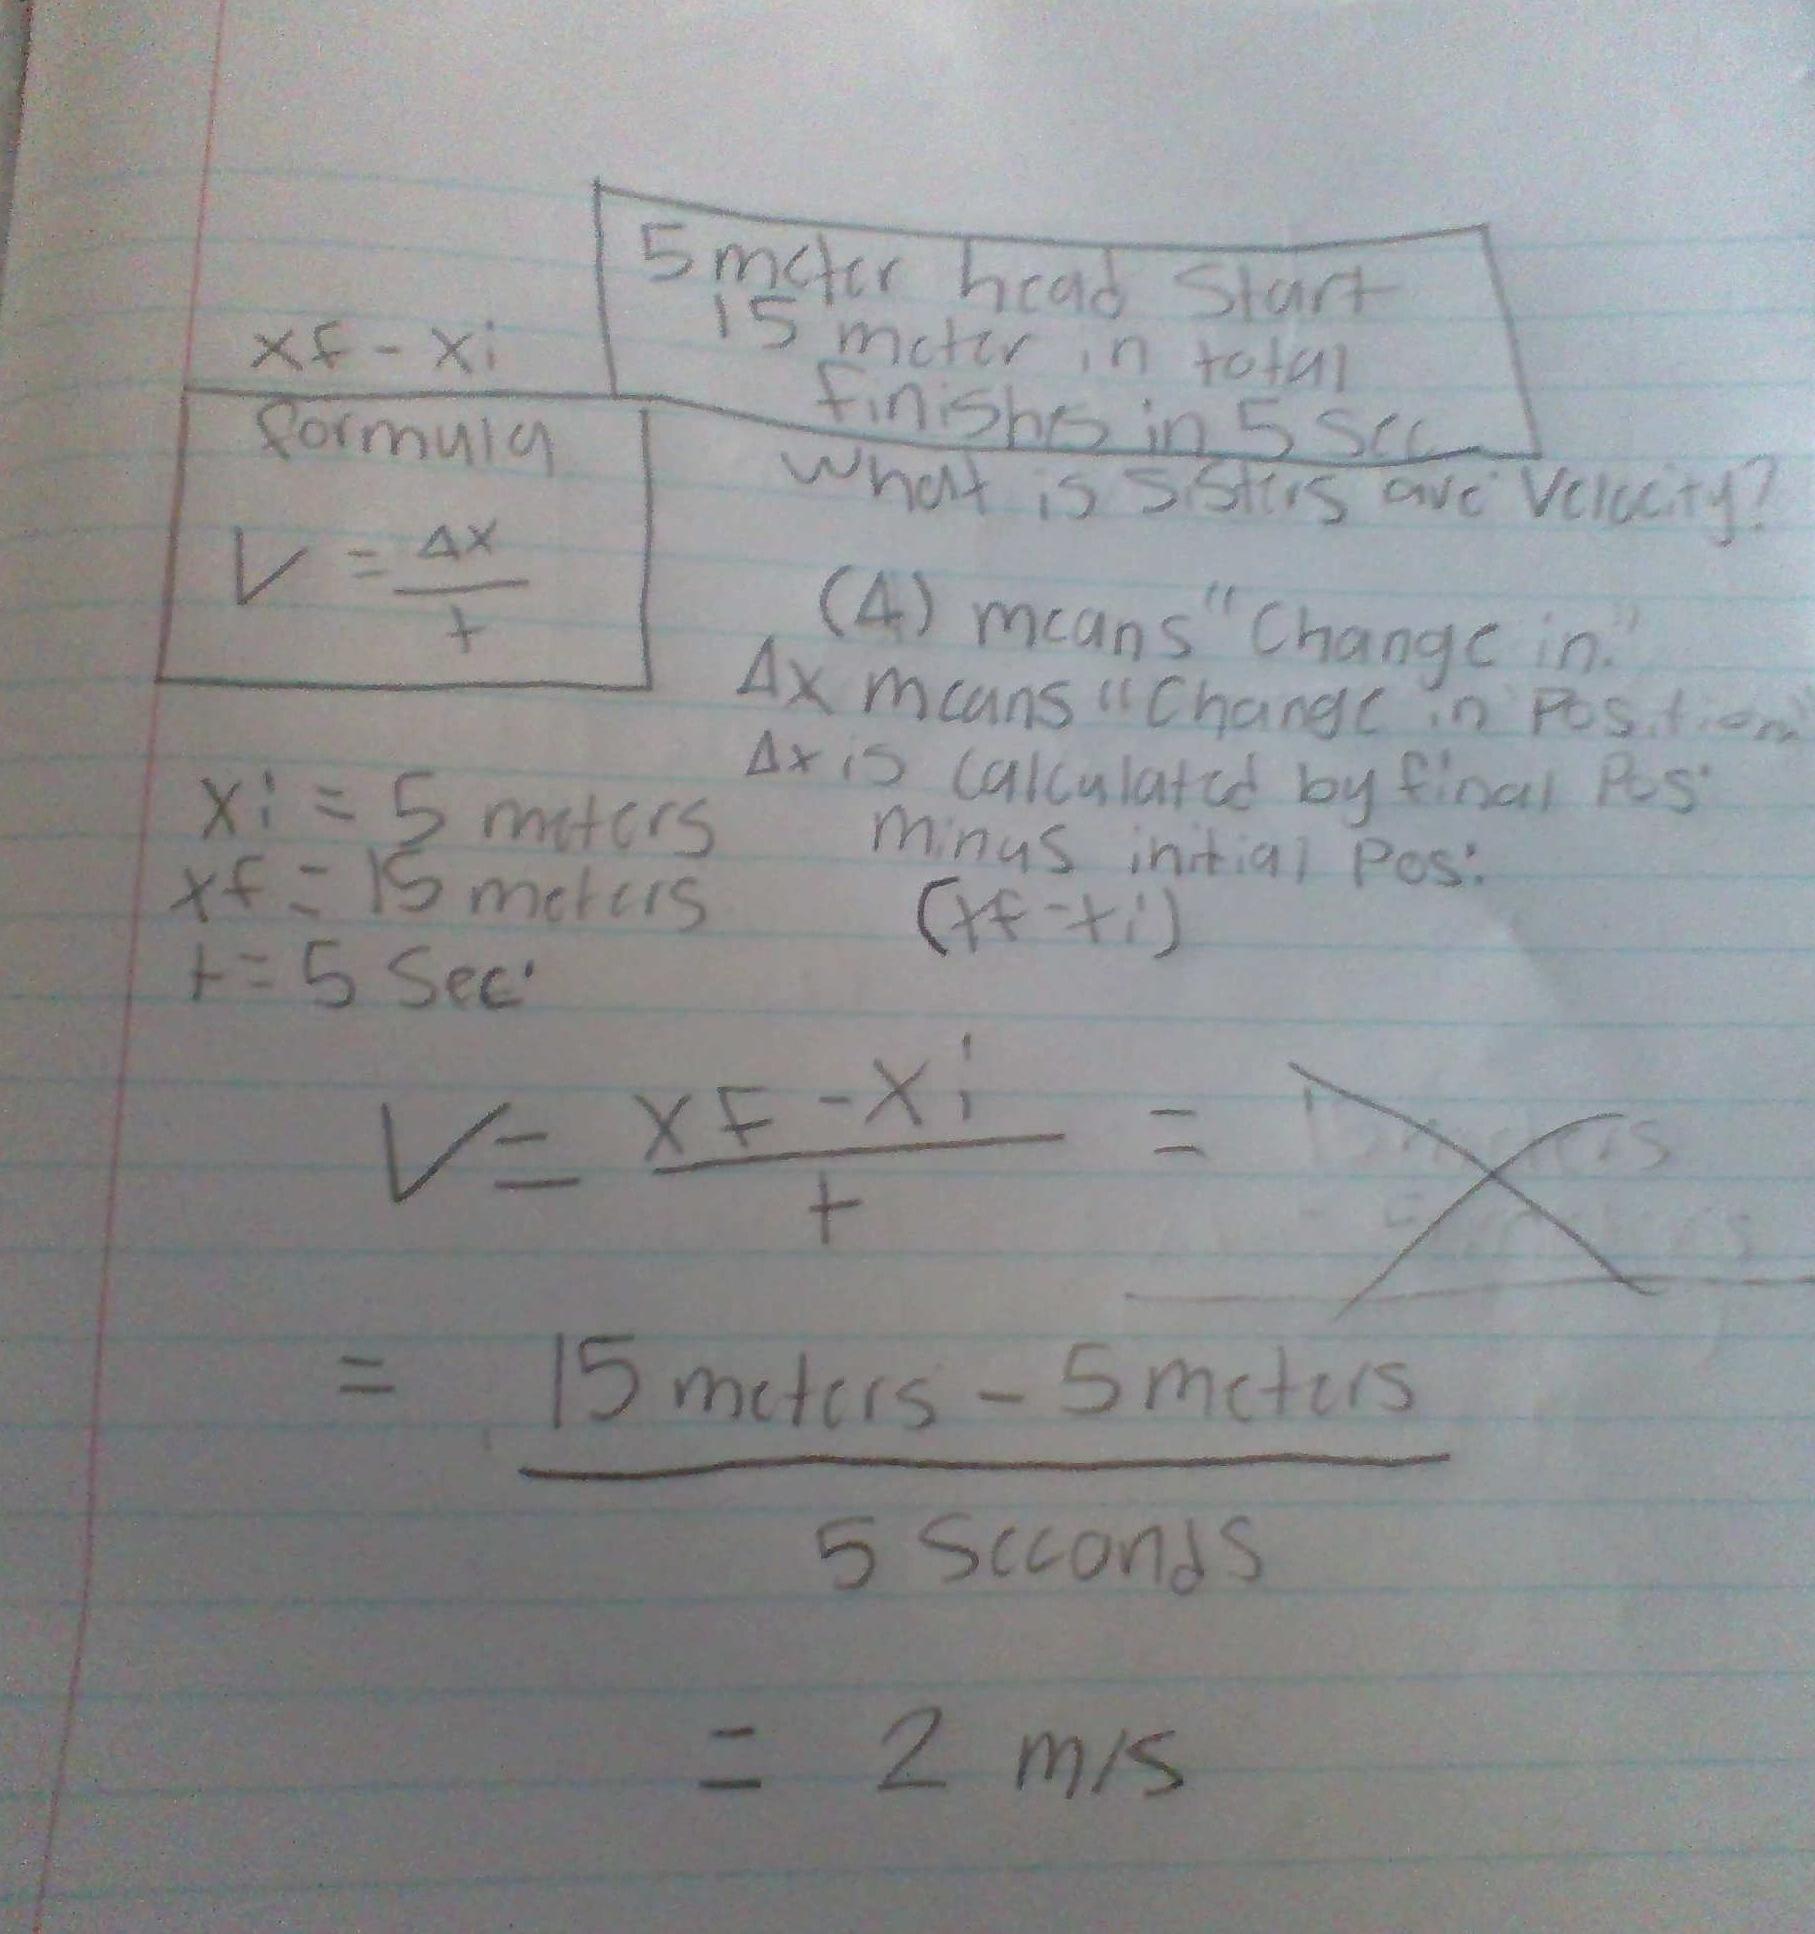 5 meter head start
15 meter in total
finishes in 5 sec
What is sisters ave velocity?
xf - xi
formula
V = Δx
t
(Δ) means "Change in."
Δx means "Change in Position"
Δx is calculated by final Pos.
minus initial Pos.
(xf - xi)
xi = 5 meters
xf = 15 meters
t = 5 Sec.
V = xf - xi =
t
15 meters
- 5 meters
= 15 meters - 5 meters
5 Seconds
= 2 m/s